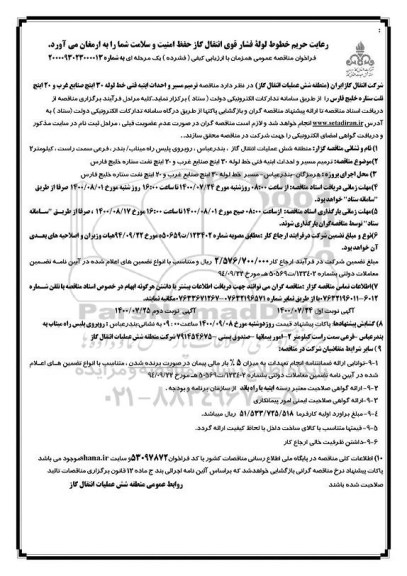 رعایت حریم خطوط لوله فشار قوی انتقال گاز حفظ امنیت و سلامت شما را به ارمغان می آورد.
فراخوان مناقصه عمومی همزمان با ارزیابی کیفی ( فشرده ) یک مرحله ای به شماره ۲۰۰۰۰۹۳۰۲۳۰۰۰۰۱۳
شرکت انتقال گاز ایران (منطقه شش عملیات انتقال گاز) در نظر دارد مناقصه ترمیم مسیر و احداث ابنیه فنی خط لوله ۳۰ اینچ صنایع غرب و ۲۰ اینچ
نفت ستاره خلیج فارس را از طریق سامانه تدارکات الکترونیکی دولت ( ستاد ) برگزار نماید. کلیه مراحل برگزاری مناقصه از
دریافت اسناد مناقصه تا ارائه پیشنهاد مناقصه گران و بازگشایی پاکتها از طریق درگاه سامانه تدارکات الکترونیکی دولت (ستاد ) به
آدرس www.setadiran.ir انجام خواهد شد و لازم است مناقصه گران در صورت عدم عضویت قبلی ، مراحل ثبت نام در سایت مذکور
و دریافت گواهی امضای الکترونیکی را جهت شرکت در مناقصه محقق سازند.
۱) نام و نشانی مناقصه گزار: منطقه شش عملیات انتقال گاز ، بندرعباس ، روبروی پلیس راه میناب/ بندر ،فرعی سمت راست ، کیلومتر۲
۲)موضوع مناقصه: ترمیم مسیر و احداث ابنیه فنی خط لوله ۳۰ اینچ صنایع غرب و ۲۰ اینچ نفت ستاره خلیج فارس
۳) محل اجرای پروژه: هرمزگان –بندرعباس- مسیر خط لوله ۳۰ اینچ صنایع غرب و ۲۰ اینچ نفت ستاره خلیج فارس
۴)مهلت زمانی دریافت اسناد مناقصه: از ساعت ۰۸:۰۰ روزشنبه مورخ ۱۴۰۰/۰۷/۲۴ تا ساعت ۱۶:۰۰ روز شنبه مورخ ۱۴۰۰/۰۸/۰۱ صرفا از طریق
"سامانه ستاد" خواهد بود.
۵)مهلت زمانی بارگذاری اسناد مناقصه: ازساعت ۰۸:۰۰ صبح مورخ ۱۴۰۰/۰۸/۰۱ تا ساعت ۱۶:۰۰ مورخ ۱۴۰۰/۰۸/۱۷ ، صرفا از طریق "سامانه
ستاد" توسط مناقصه گران بارگذاری شوند.
۶)نوع و مبلغ تضمین شرکت در فرآیند ارجاع کار :مطابق مصوبه شماره ۱۲۳۴۰۲/ت۵۰۶۵۹ه مورخ ۹۴/۰۹/۲۲ هیات وزیران و اصلاحیه های بعدی
آن خواهد بود.
مبلغ تضمین شرکت در فرآیند ارجاع کار ۲/۵۷۶/۷۰۰/۰۰۰ ریال و متناسب با انواع تضمین های اعلام شده در آیین نامه تضمین
معاملات دولتی بشماره ۱۲۳۴۰۲/ت۵۰۶۵۹ه مورخ ۹۴/۰۹/۲۲
۷)اطلاعات تماس مناقصه گزار :مناقصه گران می توانند جهت دریافت اطلاعات بیشتر یا داشتن هرگونه ابهام در خصوص اسناد مناقصه با تلفن شماره
آگهی نوبت اول ۱۴۰۰/۰۷/۲۴ آگهی نوبت دوم ۱۴۰۰/۰۷/۲۵
۸) گشایش پیشنهادها: پاکات پیشنهاد قیمت روز دوشنبه مورخ ۱۴۰۰/۰۹/۰۸ ساعت ۰۹:۰۰ به نشانی بندرعباس : روبروی پلیس راه میناب به
بندرعباس –فرعی سمت راست کیلومتر ۲ –امور پیمانها –صندوق پستی ۷۹۱۴۵۴۶۷۵– شرکت منطقه شش عملیات انتقال گاز
۹) سایر شرایط متقاضیان شرکت در مناقصه:
۹-۱-توانایی ارائه ضمانتنامه انجام تعهدات به میزان ۵ ٪ بار مالی پیمان در صورت برنده شدن ، متناسب با انواع تضمین های اعلام
شده در آیین نامه تضمین معاملات دولتی بشماره ۱۲۳۴۰۲/ت۵۰۶۵۹ه مورخ ۹۴/۰۹/۲۲
۹-۲-ارائه گواهی صلاحیت معتبر رسته ابنیه یا راه و باند از سازمان برنامه و بودجه .
۹-۳-ارائه گواهی صلاحیت ایمنی امور پیمانکاری
۹-۴-مبلغ برآورد اولیه کارفرما ۵۱/۵۳۳/۷۲۵/۵۱۸ ریال میباشد.
۹-۵-قیمتها متناسب با کالای ساخت داخل با لحاظ کیفیت ارائه گردد.
۹-۶-داشتن ظرفیت خالی ارجاع کار
۱۰) اطلاعات کلی مناقصه در پایگاه ملی اطلاع رسانی مناقصات کشور با کد فراخوان ۵۳۰۹۷۸۷۲ و سایت shana.ir موجود می باشد
پاکات پیشنهاد نرخ مناقصه گرانی بازگشایی خواهد شد که براساس آئین نامه اجرائی بند ج ماده ۱۲ قانون برگزاری مناقصات تائید
صلاحیت شده باشند
روابط عمومی منطقه شش عملیات انتقال گاز